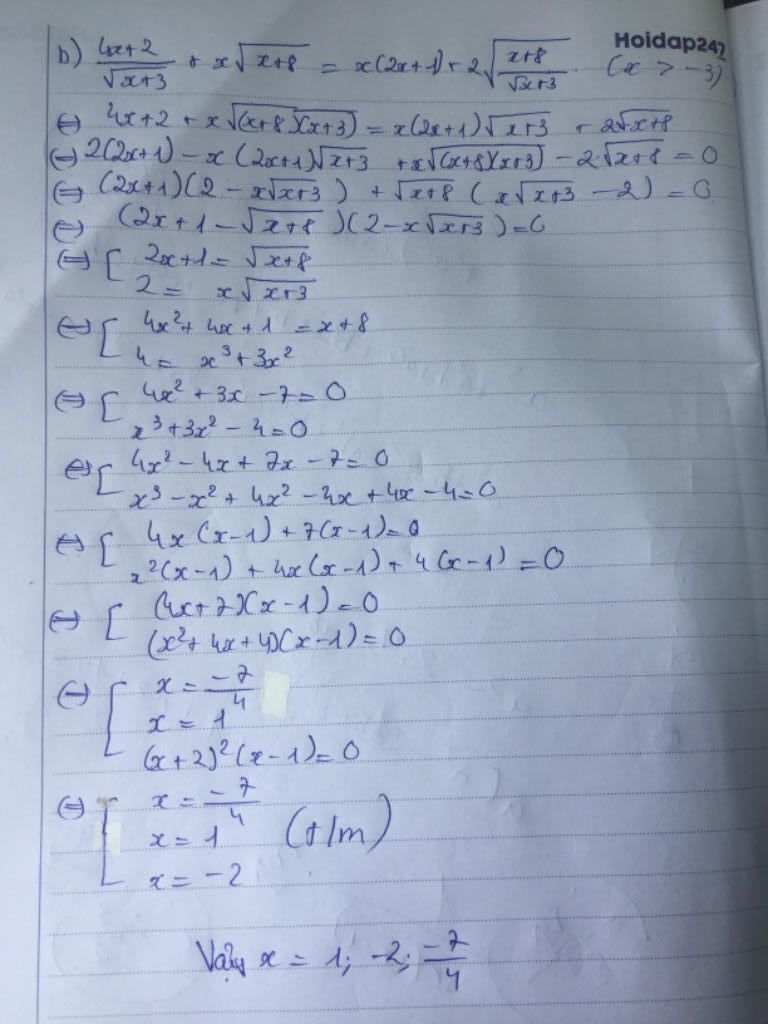 Hoidap247
b) \frac{4x+2}{\sqrt{x+3}} + x\sqrt{x+8} = x(2x+1) + 2\sqrt{\frac{x+8}{\sqrt{x+3}}} (x > -3)
⇔ 4x+2 + x\sqrt{(x+8)(x+3)} = x(2x+1)\sqrt{x+3} + 2\sqrt{x+8}
⇔ 2(2x+1) - x(2x+1)\sqrt{x+3} + x\sqrt{(x+8)(x+3)} - 2\sqrt{x+8} = 0
⇔ (2x+1)(2 - x\sqrt{x+3}) + \sqrt{x+8}(x\sqrt{x+3} - 2) = 0
⇔ (2x+1 - \sqrt{x+8})(2 - x\sqrt{x+3}) = 0
⇔ [ 2x+1 = \sqrt{x+8}
2 = x\sqrt{x+3}
⇔ [ 4x² + 4x + 1 = x + 8
4 = x³ + 3x²
⇔ [ 4x² + 3x - 7 = 0
x³ + 3x² - 4 = 0
⇔ [ 4x² - 4x + 7x - 7 = 0
x³ - x² + 4x² - 4x + 4x - 4 = 0
⇔ [ 4x(x-1) + 7(x-1) = 0
x²(x-1) + 4x(x-1) + 4(x-1) = 0
⇔ [ (4x+7)(x-1) = 0
(x² + 4x + 4)(x-1) = 0
⇔ [ x = \frac{-7}{4}
x = 1
(x+2)²(x-1) = 0
⇔ [ x = \frac{-7}{4}
x = 1 (t/m)
x = -2
Vậy x = 1; -2; \frac{-7}{4}